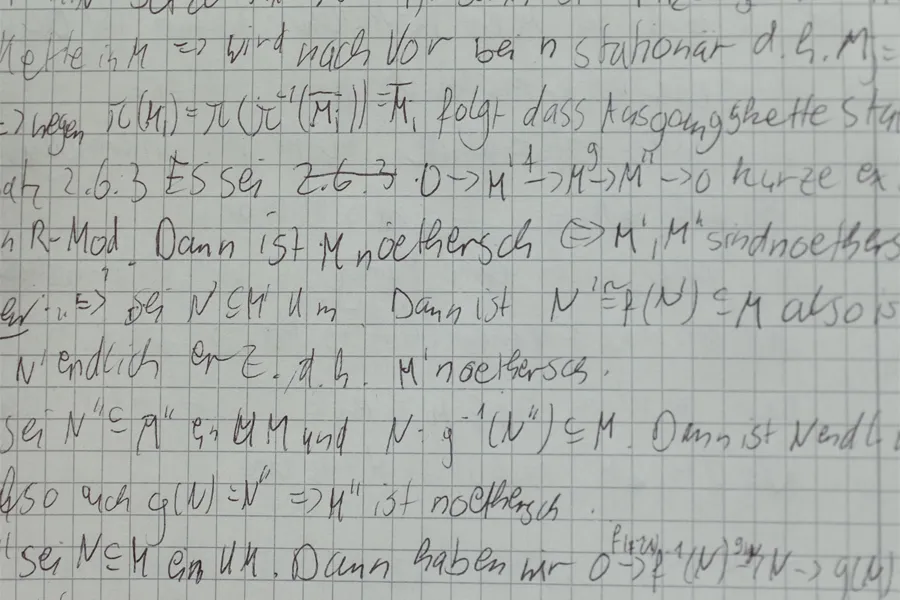 Kette in M => wird nach Vor bei n stationär d.h. Mj =
=> wegen π(Mi) = π(π⁻¹(M̄i)) = M̄i folgt dass Ausgangskette stat
atz 2.6.3 Es sei 0 → M' →f M →g M'' → 0 kurze ex.
n R-Mod. Dann ist M noethersch <=> M', M'' sind noethers
"=>" Sei N' ⊆ M' UM. Dann ist N' ≅ f(N') ⊆ M also is
N' endlich erz., d.h. M' noethersch.
Sei N'' ⊆ M'' ein UM und N = g⁻¹(N'') ⊆ M. Dann ist N endl
Also auch g(N) = N'' => M'' ist noethersch.
Sei N ⊆ M ein UM. Dann haben wir 0 → f⁻¹(N) → N → g(N)